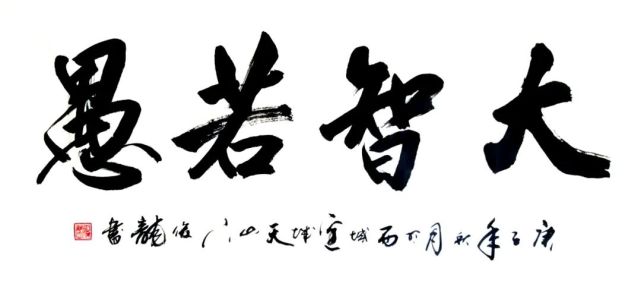 大智若愚
庚子年秋月於西域城天山俊龍書